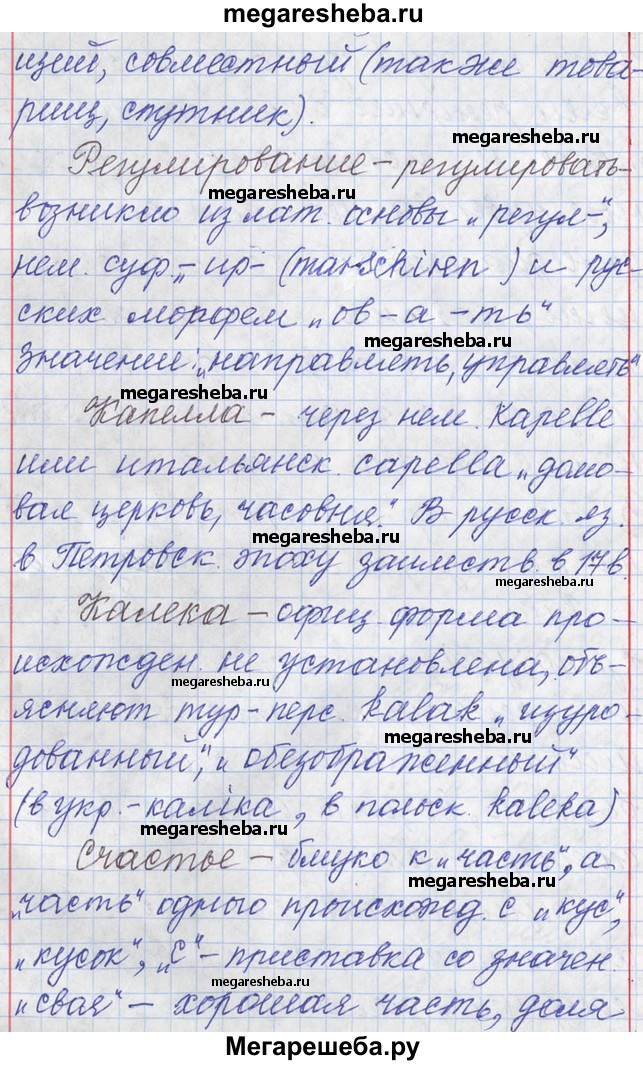 megaresheba.ru
щий, совместный (также това-
рищ, спутник).
megaresheba.ru
Регулирование – регулировать-
megaresheba.ru
возникло из лат. основы „регул-“,
нем. суф. „- ир- (marschiren ) и рус-
ских морфем „ов-а-ть“
megaresheba.ru
значение: „направлять, управлять“
megaresheba.ru
Капелла – через нем. Kapelle
megaresheba.ru
или итальянск. capella „домо-
вая церковь, часовня“. В русск. яз.
megaresheba.ru
в Петровск. эпоху заимств. в 17 в.
megaresheba.ru
Калека – офиц. форма про-
megaresheba.ru
исхожден. не установлена, объ-
megaresheba.ru
ясняют тур-перс. kalak „изуро-
megaresheba.ru
дованный“, „обезображенный“
(в укр.-каліка, в польск. kaleka)
megaresheba.ru
Счастье – близко к „часть“, а
megaresheba.ru
„часть“ одного происхожд. с „кус“,
„кусок“, „с“ – приставка со значен.
megaresheba.ru
„своя“ – хорошая часть, доля
Мегарешеба.ру